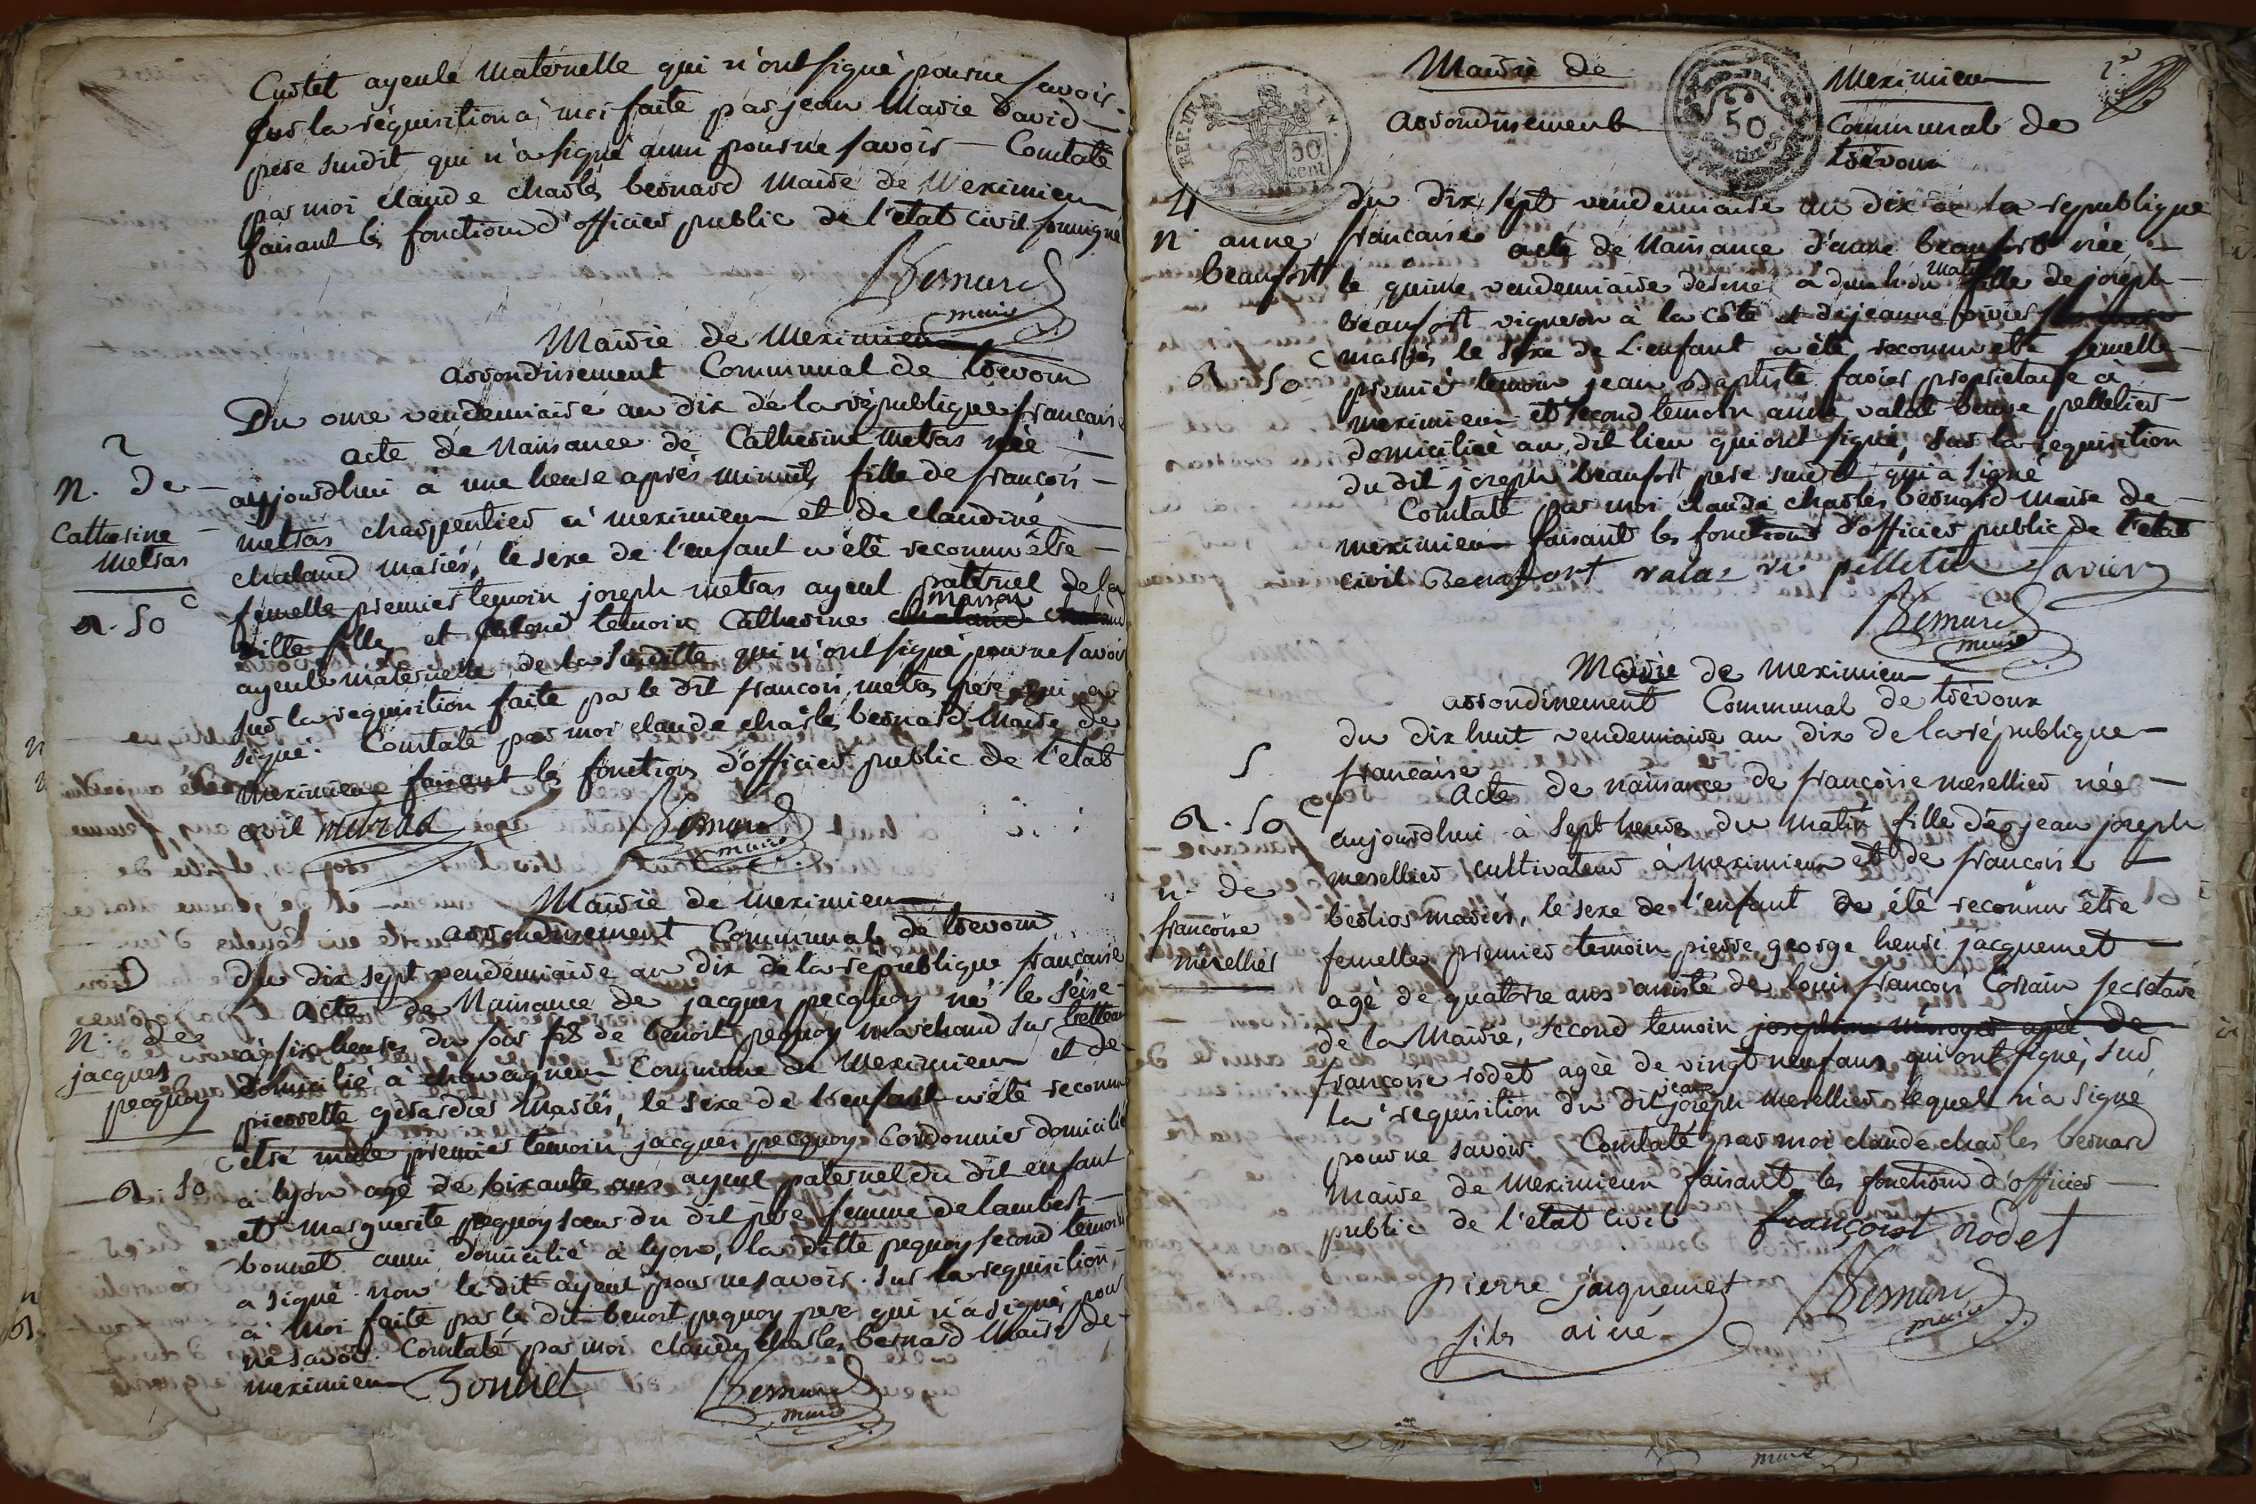 Curtet ayeule maternelle qui n'ont signé pour ne savoir.
sur la réquisition à moi faite par jean Marie David
pere susdit qui n'a signé aussi pour ne savoir — Constaté
par moi claude charles bernard Maire de Meximieu
faisant les fonctions d'officier public de l'état civil soussigné
Bernard
maire
Mairie de Meximieu
arrondissement Communal de trevoux
Du onze vendemiaire an dix de la république française
2
acte de Naissance de Catherine metras née
N. de
aujjourdhui à une heure après minuit, fille de françois
Catherine
metras charpentier à meximieu et de claudine
Metras
chaland mariés, le sexe de l'enfant a été reconnu être
femelle premier temoin joseph metras ayeul paternel de la
R. 50 c
masson
ditte fille, et second temoin Catherine
ayeule maternelle de la susditte qui n'ont signé pour ne savoir
sur la requisition faite par le dit françois metras pere qui a
signé. Constaté par moi claude charles bernard Maire de
meximieu faisant les fonctions d'officier public de l'état
civil metras Bernard
maire
Mairie de meximieu
arrondissement Communal de trevoux
3
du dix sept vendemiaire an dix de la république française
acte de Naissance de jacques pecquoy né le seize
N. de
à six heures du soir fils de benoit pequoy marchand sur
jacques
domicilié à chavagneux Commune de Meximieu et de
pecquoy
pierrette girardier mariés, le sexe de l'enfant a été reconnu
être male premier temoin jacques pecquoy Cordonnier domicilié
R. 50 c
à lyon agé de soixante ans ayeul paternel du dit enfant
et marguerite pequoy soeur du dit pere femme de lambert
bonnet aussi domicilié à lyon, la ditte pequoy second temoin
a signé non le dit ayeul pour ne savoir. sur la requisition
à moi faite par le dit benoit pequoy pere qui n'a signé pour
ne savoir. Constaté par moi claude charles bernard Maire de
meximieu Bonnet Bernard
maire
Mairie de Meximieu
arrondissement Communal de
trévoux
REP. FRA.
50
cent
50
centimes
4
du dix sept vendemiaire an dix de la republique
N. anne
francaise acte de Naissance d'anne beaufort née
beaufort
le quinze vendemiaire
matin
fille de joseph
beaufort vigneron à la côte et de jeanne
R. 50 c
mariés le sexe de L'enfant a été reconnu etre femelle
premier temoin jean Baptiste favier proprietaire à
meximieu et second temoin anne valat veuve pelletier
domiciliée au dit lieu qui ont signé, sur la requisition
du dit joseph beaufort pere susdit qui a signé
Constaté par moi claude charles bernard Maire de
meximieu faisant les fonctions d'officier public de l'etat
civil Beaufort valaz ve pelletier favier
Bernard
maire
Mairie de meximieu
arrondissement Communal de trévoux
du dix huit vendemiaire an dix de la république
5
francaise
acte de naissance de françoise merellier née
R. 50 c
aujourdhui à sept heures du matin fille de jean joseph
merellier cultivateur à meximieux et de francoise
N. de
berlios mariés, le sexe de l'enfant a été reconnu être
françoise
merellier
femelle premier temoin pierre george henri jacquemet
agé de quatorze ans de louis françois secretaire
de la Mairie, second temoin
françoise rodet agée de vingt neuf ans, qui ont signé, sur
jean
la requisition du dit joseph merellier lequel n'a signé
pour ne savoir. Constaté par moi claude charles bernard
Maire de Meximieux faisant les fonctions d'officier
public de l'état civil françoist rodet
pierre jaquemet
fils ainé
Bernard
maire
maire